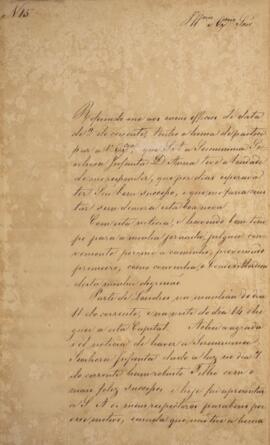 N.15
Illmo e Exmo Snr
Referindo me aos meus officios de data
de 9 do corrente, tenho a honra de partici
par a V. Exa que S. A. a Serenissima Se
nhora Infanta D. Anna teve a bondade
de me responder, que por dias esperava
ter Seu bom successo, e que me faria
sem demora esta boa nova.
Com esta noticia, e havendo bom tem
po para a minha jornada, julguei con
veniente pôr-me a caminho, prevenindo
primeiro, como convinha, o
desta minha
Parti de Londres na manhãa do dia
11 do corrente, e na noite do dia 14 che
guei a esta Capital. Achei a agrada
vel noticia de haver a Serenissima
Senhora Infanta dado a luz no dia 7
do corrente hum robusto Filho com o
mais feliz successo, e hoje fui apresentar
a S. A. os meus respeitosos parabens por
este motivo, ainda que não tive a honra